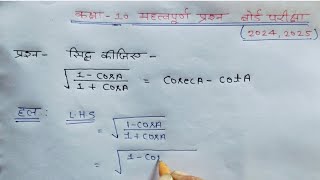 कक्षा-10 महत्वपूर्ण प्रश्न बोर्ड परीक्षा
(2024, 2025)
प्रश्न- सिद्ध कीजिए-
√(1-cosA / 1+cosA) = cosecA - cotA
हल: LHS
= √(1-cosA / 1+cosA)
= √(1-cos